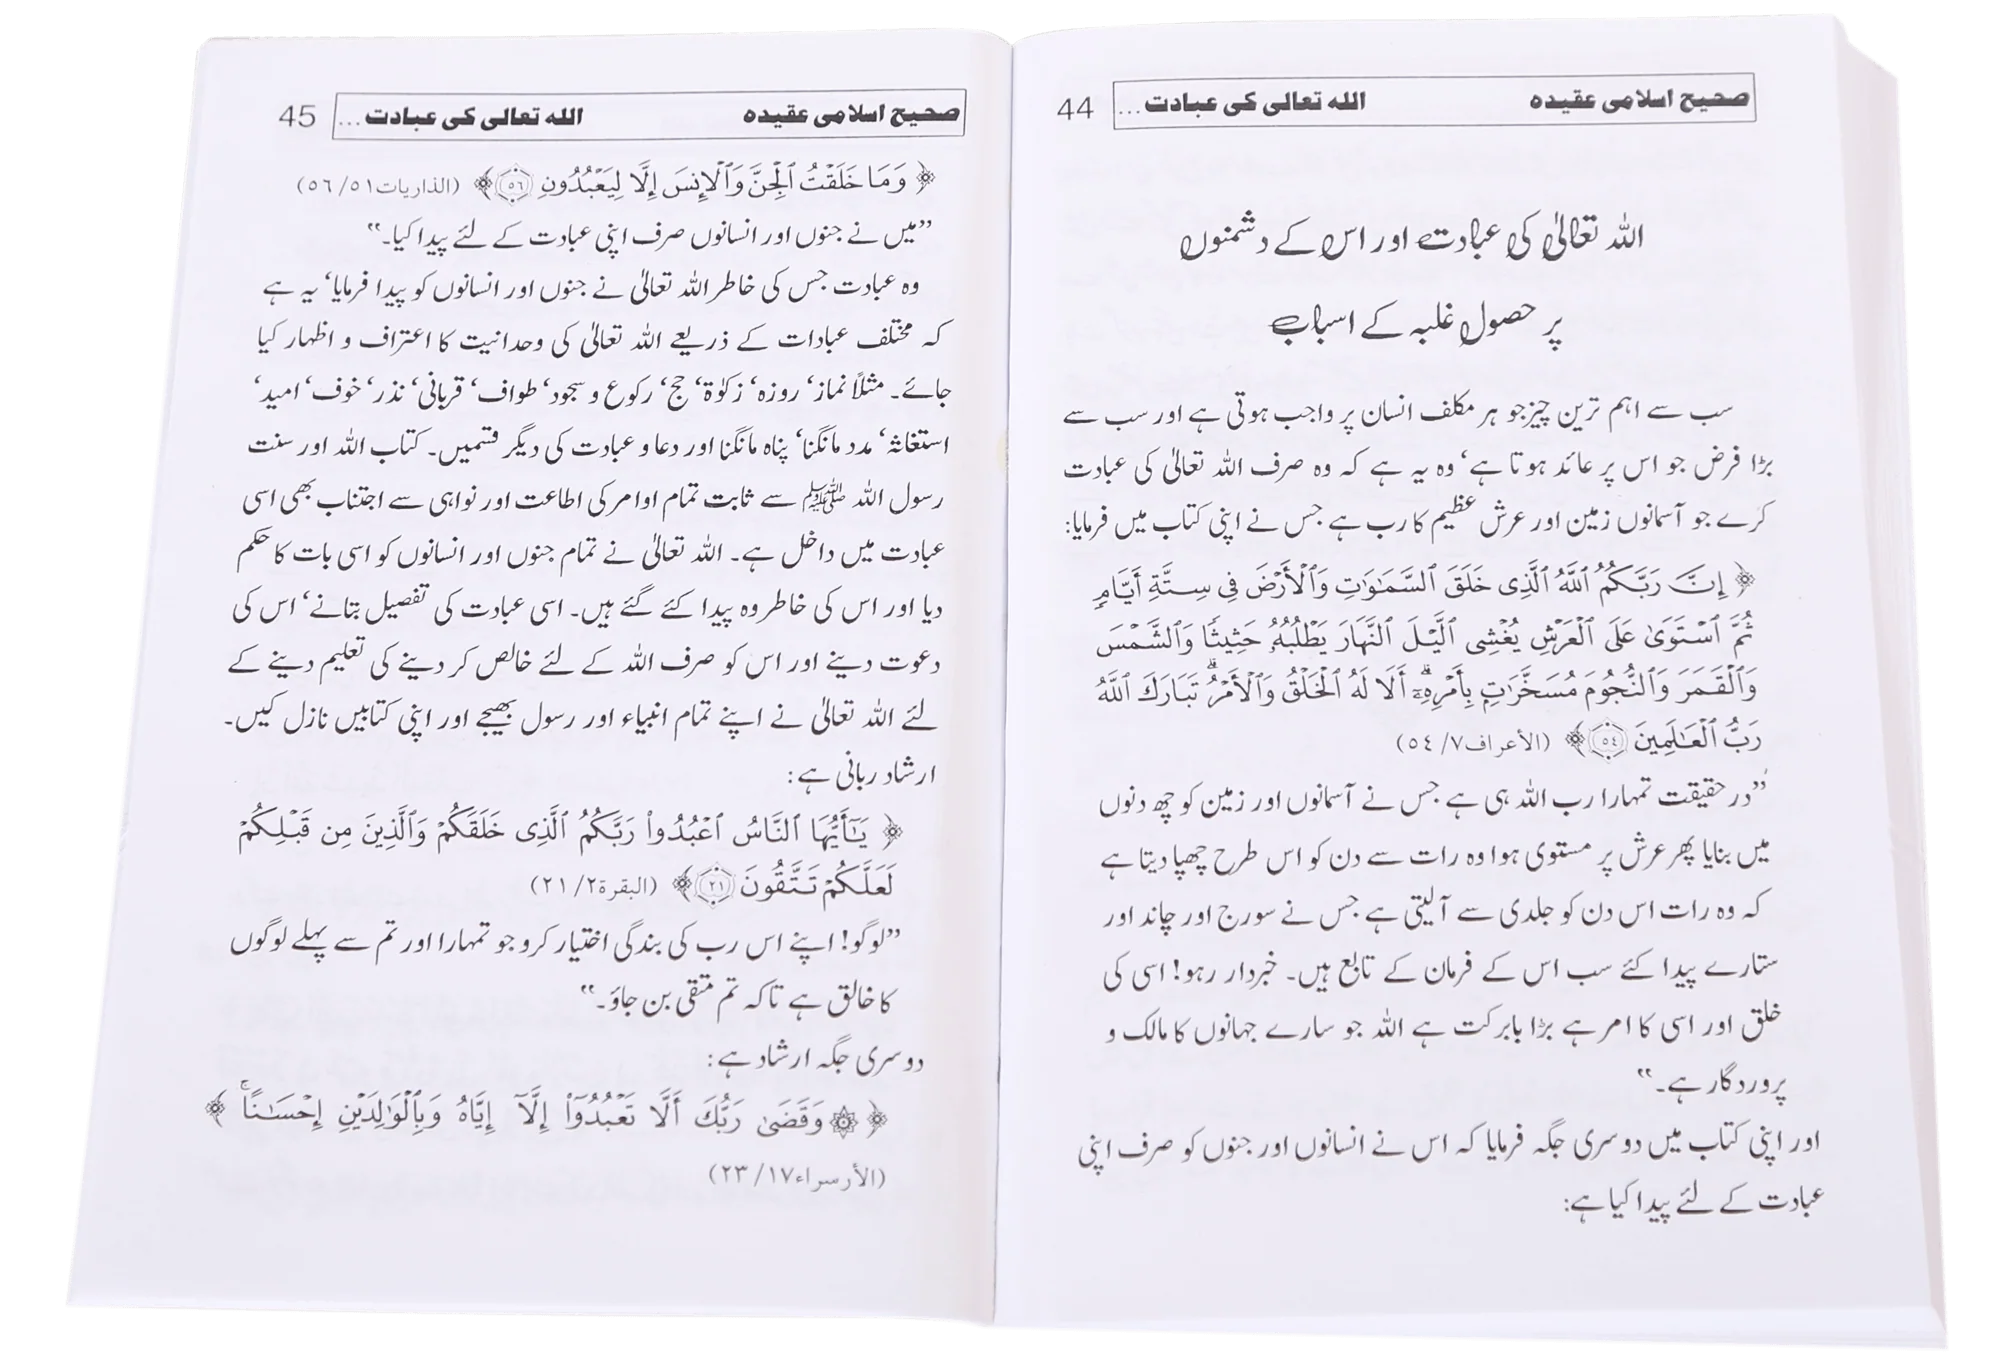 صحیح اسلامی عقیدہ اللہ تعالی کی عبادت ... 44
اللہ تعالیٰ کی عبادت اور اس کے دشمنوں
پر حصول غلبہ کے اسباب
سب سے اہم ترین چیز جو ہر مکلف انسان پر واجب ہوتی ہے اور سب سے
بڑا فرض جو اس پر عائد ہوتا ہے‘ وہ یہ ہے کہ وہ صرف اللہ تعالیٰ کی عبادت
کرے جو آسمانوں زمین اور عرش عظیم کا رب ہے جس نے اپنی کتاب میں فرمایا:
﴿ إِنَّ رَبَّكُمُ ٱللَّهُ ٱلَّذِى خَلَقَ ٱلسَّمَـٰوَٰتِ وَٱلْأَرْضَ فِى سِتَّةِ أَيَّامٍ
ثُمَّ ٱسْتَوَىٰ عَلَى ٱلْعَرْشِ يُغْشِى ٱلَّيْلَ ٱلنَّهَارَ يَطْلُبُهُۥ حَثِيثًا وَٱلشَّمْسَ
وَٱلْقَمَرَ وَٱلنُّجُومَ مُسَخَّرَٰتٍۭ بِأَمْرِهِۦٓ ۗ أَلَا لَهُ ٱلْخَلْقُ وَٱلْأَمْرُ ۗ تَبَارَكَ ٱللَّهُ
رَبُّ ٱلْعَـٰلَمِينَ ٥٤ ﴾ (الأعراف٧/٥٤)
”در حقیقت تمہارا رب اللہ ہی ہے جس نے آسمانوں اور زمین کو چھ دنوں
میں بنایا پھر عرش پر مستوی ہوا وہ رات سے دن کو اس طرح چھپا دیتا ہے
کہ وہ رات اس دن کو جلدی سے آ لیتی ہے جس نے سورج اور چاند اور
ستارے پیدا کئے سب اس کے فرمان کے تابع ہیں۔ خبردار رہو! اسی کی
خلق اور اسی کا امر ہے بڑا بابرکت ہے اللہ جو سارے جہانوں کا مالک و
پروردگار ہے۔“
اور اپنی کتاب میں دوسری جگہ فرمایا کہ اس نے انسانوں اور جنوں کو صرف اپنی
عبادت کے لئے پیدا کیا ہے:
صحیح اسلامی عقیدہ اللہ تعالی کی عبادت ... 45
﴿ وَمَا خَلَقْتُ ٱلْجِنَّ وَٱلْإِنسَ إِلَّا لِيَعْبُدُونِ ٥٦ ﴾ (الذاريات٥١/٥٦)
”میں نے جنوں اور انسانوں صرف اپنی عبادت کے لئے پیدا کیا۔“
وہ عبادت جس کی خاطر اللہ تعالیٰ نے جنوں اور انسانوں کو پیدا فرمایا‘ یہ ہے
کہ مختلف عبادات کے ذریعے اللہ تعالیٰ کی وحدانیت کا اعتراف و اظہار کیا
جائے۔ مثلاً نماز‘ روزہ‘ زکوٰۃ‘ حج‘ رکوع و سجود‘ طواف‘ قربانی‘ نذر‘ خوف‘ امید‘
استغاثہ‘ مدد مانگنا‘ پناہ مانگنا اور دعا و عبادت کی دیگر قسمیں۔ کتاب اللہ اور سنت
رسول اللہ ﷺ سے ثابت تمام اوامر کی اطاعت اور نواہی سے اجتناب بھی اسی
عبادت میں داخل ہے۔ اللہ تعالیٰ نے تمام جنوں اور انسانوں کو اسی بات کا حکم
دیا اور اس کی خاطر وہ پیدا کئے گئے ہیں۔ اسی عبادت کی تفصیل بتانے‘ اس کی
دعوت دینے اور اس کو صرف اللہ کے لئے خالص کر دینے کی تعلیم دینے کے
لئے اللہ تعالیٰ نے اپنے تمام انبیاء اور رسول بھیجے اور اپنی کتابیں نازل کیں۔
ارشاد ربانی ہے:
﴿ يَـٰٓأَيُّهَا ٱلنَّاسُ ٱعْبُدُوا۟ رَبَّكُمُ ٱلَّذِى خَلَقَكُمْ وَٱلَّذِينَ مِن قَبْلِكُمْ
لَعَلَّكُمْ تَتَّقُونَ ٢١ ﴾ (البقرة٢/٢١)
”لوگو! اپنے اس رب کی بندگی اختیار کرو جو تمہارا اور تم سے پہلے لوگوں
کا خالق ہے تاکہ تم متقی بن جاؤ۔“
دوسری جگہ ارشاد ہے:
﴿ ۞ وَقَضَىٰ رَبُّكَ أَلَّا تَعْبُدُوٓا۟ إِلَّآ إِيَّاهُ وَبِٱلْوَٰلِدَيْنِ إِحْسَـٰنًا ۚ ﴾
(الأرسراء١٧/٢٣)